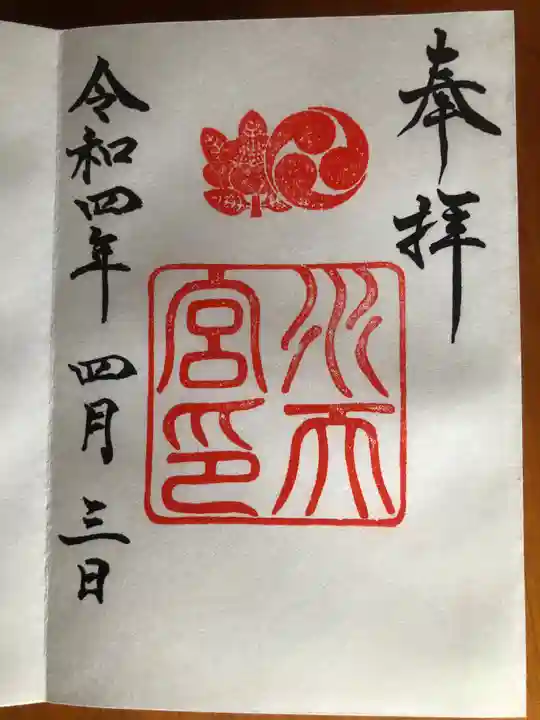 奉拝
水天宮印
令和四年四月三日